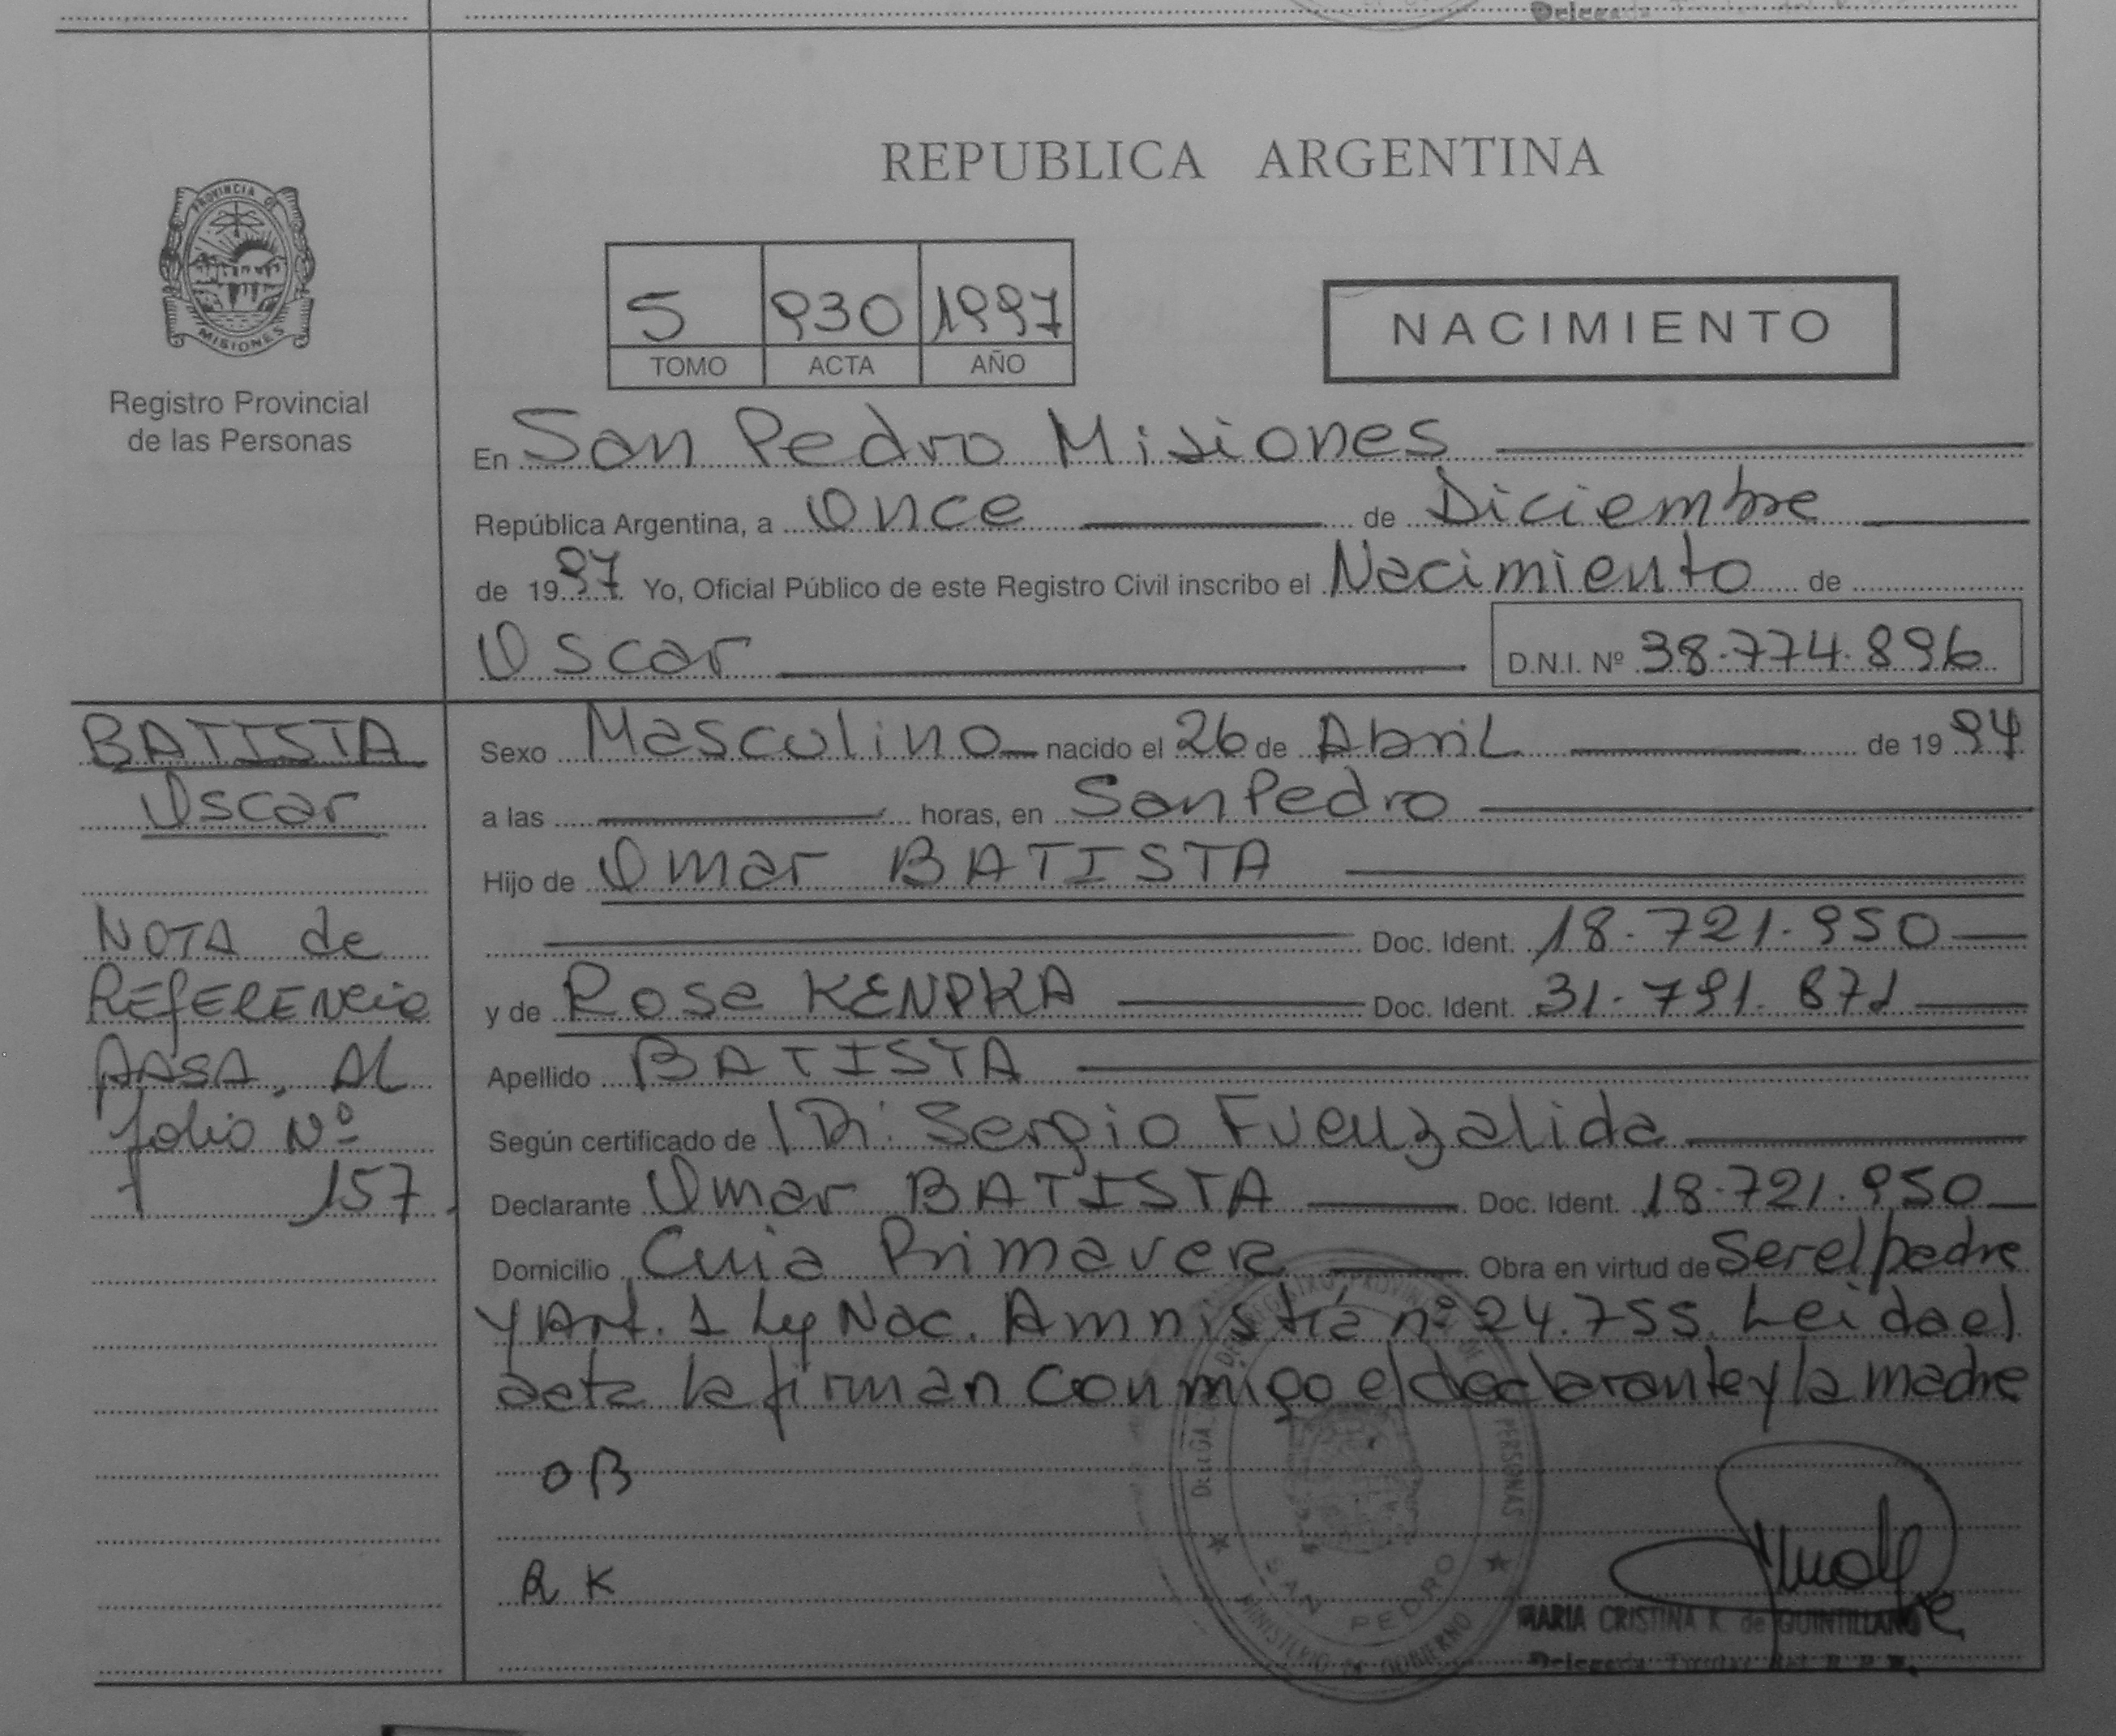 Delegada
REPUBLICA ARGENTINA
PROVINCIA DE
MISIONES
Registro Provincial
de las Personas
5 930 1997
TOMO ACTA AÑO
NACIMIENTO
En San Pedro Misiones
República Argentina, a Once de Diciembre
de 1997 Yo, Oficial Público de este Registro Civil inscribo el Nacimiento de
Oscar D.N.I. Nº 38.774.896
BATISTA
Oscar
NOTA de
REFERENCIA
PASA. AL
folio Nº
157.
Sexo Masculino nacido el 26 de Abril de 1994
a las horas, en San Pedro
Hijo de Omar BATISTA
Doc. Ident. 18.721.950
y de Rosa KENPKA Doc. Ident. 31.791.871
Apellido BATISTA
Según certificado de Dr: Sergio Fuenzalida
Declarante Omar BATISTA Doc. Ident. 18.721.950
Domicilio Cuia Primavera Obra en virtud de Ser el padre
y Art. 1 Ley Nac. Amnistia nº 24.755. Leida el
acta la firman conmigo el declarante y la madre
OB
RK
PERSONAS
SAN PEDRO
MINISTERIO DE GOBIERNO
MARIA CRISTINA K. de QUINTILLANO
Delegada